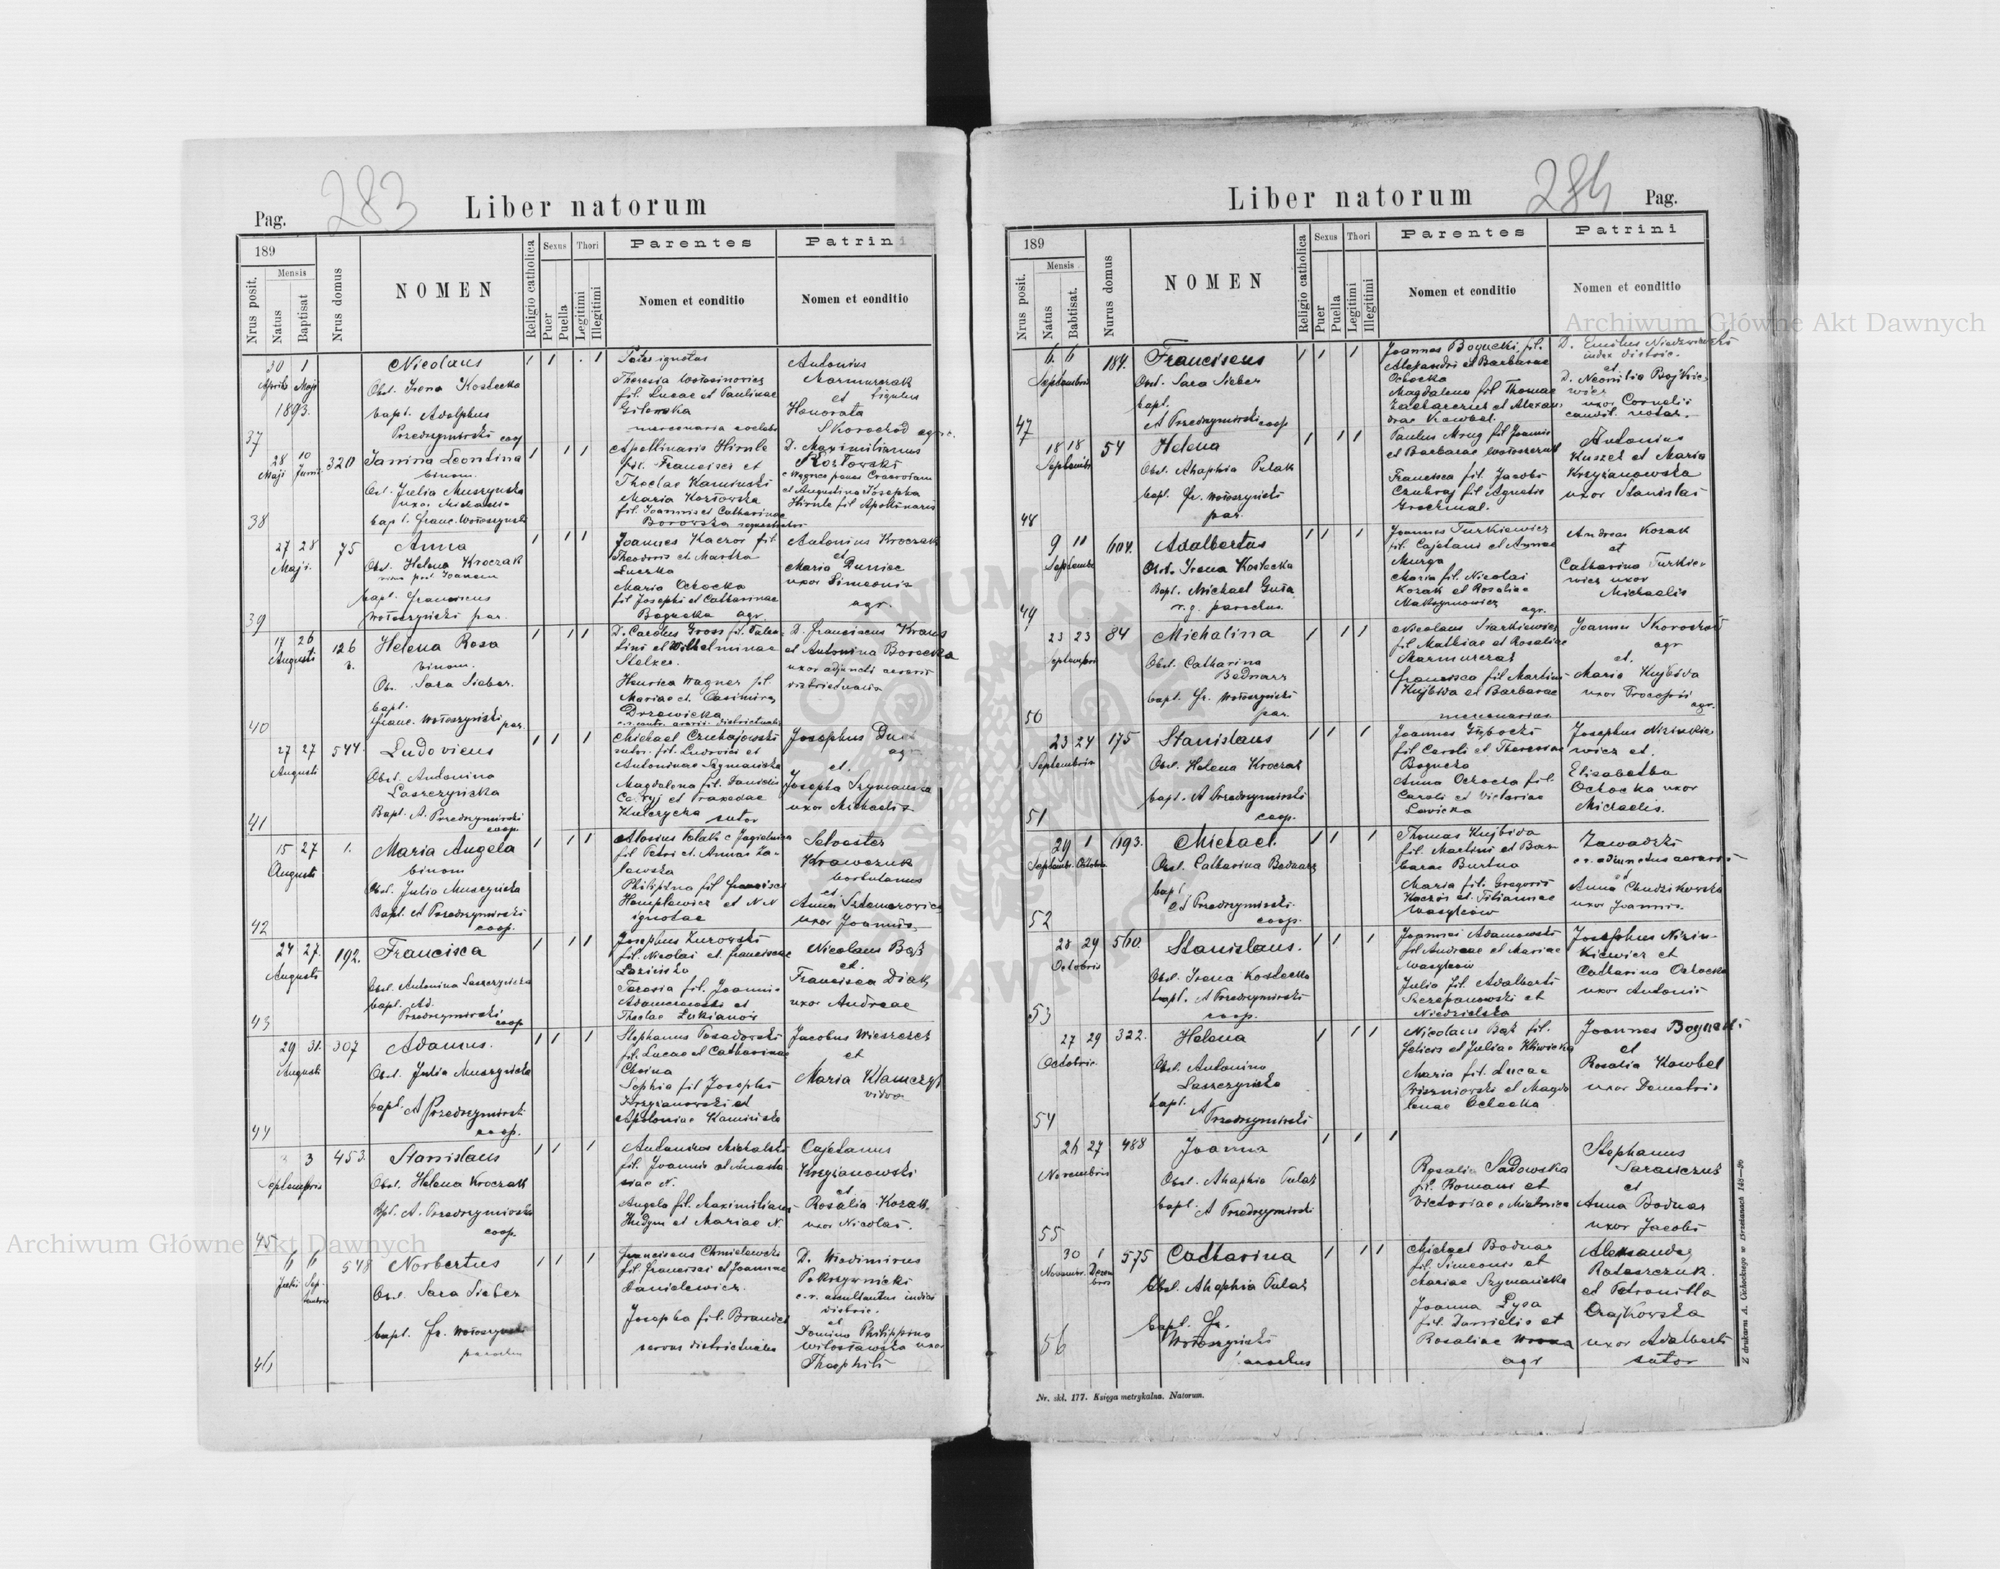 283
Pag.
Liber natorum
189
Nrus posit.
Mensis
Natus
Baptisat
Nrus domus
NOMEN
Religio catholica
Sexus
Puer
Puella
Thori
Legitimi
Illegitimi
Parentes
Nomen et conditio
Patrini
Nomen et conditio
37
30 1
Aprilis Maji
1893.
Nicolaus
Obst. Irena Kostecka
bapt. Adolphus
Przedrzymirski coop
Pater ignotus
Theresia
fil. Lucae et Paulinae
mercenaria
Antonius
Marmurczak
et figulus
Honorata
Skorochod
38
28 10
Maji Junii
320
Janina Leontina
binom.
Obst. Julia Muszyńska
uxor Michaelis
bapt. Franc. Wołoszyński
Apollinaris Hirnle
fil. Francisci et
Theclae Kamiński
Maria Kozłowska
fil. Joannis et Catharinae
Borowska
D. Maximilianus
Kozłowski
et Augustina Josepha
Hirnle fil Apollinaris
39
27 28
Maji.
75
Anna
Obst. Helena Kroczak
bapt. Franciscus
Wołoszyński par.
Joannes Kaczor fil.
Theodoris et Martha
Maria Ochocka
fil Josephi et Catharinae
Bogucka agr.
Antonius Kroczak
et
Maria Duniec
uxor Simeonis
agr.
40
17 26
Augusti
126
Helena Rosa
binom.
Ob. Sara Sieber.
bapt.
Franc. Wołoszyński par.
D. Carolus Gross fil. Valen-
tini et Wilhelminae
Stelzer.
Henrica Wagner fil.
Mariae et Casimiri
Drzewicka
D. Franciscus Kraus
et Antonina Borecka
uxor adjuncti aerarii
41
27 27
Augusti
544.
Ludovicus
Obst. Antonina
Laszczyńska
Bapt. A. Przedrzymirski
coop.
Michael Czuhajowski
sutor. fil. Ludovici et
Antoninae Szymańska
Magdalena fil. Danielis
Kulczycka sutor
Josephus
agr.
et.
Josepha Szymańska
uxor Michaelis
42
15 27
Augusti
1.
Maria Angela
binom
Obst. Julia Muszyńska
Bapt. A Przedrzymirski
coop.
Aloisius Polak e Jagielnica
fil Petri et Annae Za-
lewska
Philipina fil Francisci
Hamplewicz et N N
ignotae
Silvester
Krawczuk
hortulanus
et.
Anna
uxor Joannis
43
24 27.
Augusti
192.
Francisca
Obst. Antonina Laszczyńska
bapt. Ad.
Przedrzymirski
coop
Josephus Żurowski
fil. Nicolai et Franciscae
Teresia fil. Joannis
Adamczewski et
Theclae Łukianów
Nicolaus Bąk
et.
Francisca Diak
uxor Andreae
44
29 31.
Augusti
307
Adamus.
Obst. Julia Muszyńska
bapt. A Przedrzymirski
coop.
Stephanus Posadowski
fil. Lucae et Catharinae
Choina
Sophia fil Josephi
Krzyżanowski et
Apoloniae Kamińska
Jacobus Wieszczek
et
Maria Klamczyk
vidua
45
3
Septembris
453.
Stanislaus
Obst. Helena Kroczak
Bpt. A. Przedrzymirski
coop.
Antonius Michalski
fil. Joannis et Anasta-
siae N.
Angela fil. Maximiliani
et Mariae N.
Cajetanus
Krzyżanowski
et
Rosalia Kozak
uxor Nicolai.
46
6 6
Julii Sep-
tembris
548
Norbertus
Obst. Sara Sieber
bapt. Fr. Wołoszyński
parochus
Franciscus Chmielewski
fil. Francisci et Joannae
Danielewicz.
Josepha fil. Brandes
servus districtualis
D. Wladimirus
c.r. auscultantus iudicii
district.
et
Domina Philippina
Witosławska uxor
Theophili
284
Liber natorum
Pag.
189
Nrus posit.
Mensis
Natus
Babtisat.
Nurus domus
NOMEN
Religio catholica
Sexus
Puer
Puella
Thori
Legitimi
Illegitimi
Parentes
Nomen et conditio
Patrini
Nomen et conditio
47
6 6
Septembris
184.
Franciscus
Obst. Sara Sieber
bapt.
A Przedrzymirski coop
Joannes Bogucki, fil.
Alexandri et Barbarae
Ochocka
Magdalena fil Thomae
Zacharczuk et Alexan-
drae Kawbel.
D. Emilus
iudex district.
et
D. Neonilia
uxor Cornelii
candit. notar.
48
18 18
Septembris
54
Helena
Obst. Ahaphia Pulak
bapt. Fr. Wołoszyński
par.
Paulus Mrug fil Joannis
et Barbarae
Francisca fil. Jacobi
Czuhraj fil Agnetis
Grochmal.
Antonius
Kuszek et Maria
Krzyżanowska
uxor Stanislai
49
9 11
Septembr
604.
Adalbertus
Obst. Irena Kostecka
Bapt. Michael Guśa
r. g. parochus.
Joannes Turkiewicz
fil. Cajetani et Annae
Murga
Maria fil. Nicolai
Kozak et Rosaliae
Maksymowicz agr.
Andreas Kozak
et
Catharina Turkie-
wicz uxor
Michaelis
50
23 23
Septembris
84
Michalina
Obst. Catharina
Bednarz
bapt. Fr. Wołoszyński
par.
Nicolaus Siarkiewicz
fil Mathiae et Rosaliae
Marmurczak
Francisca fil Martini
Kujbida et Barbarae
mercenarius
Joannes Skorochod
agr
et.
Maria Kujbida
uxor Procopii
agr.
51
23 24
Septembris
175
Stanislaus
Obst. Helena Kroczak
bapt. A Przedrzymirski
coop.
Joannes Głębocki
fil Caroli et Theresiae
Bogucka
Anna Ochocka fil.
Caroli et Victoriae
Lewicka
Josephus Nizinkie-
wicz et.
Elisabetha
Ochocka uxor
Michaelis.
52
29 1
Septembr. Octobr.
693.
Michael.
Obst. Catharina Bednarz
bapt.
A Przedrzymirski.
coop.
Thomas Kujbida
fil. Martini et Bar-
barae Burtna
Maria fil. Gregorii
Kaczór et Tilianae
Wasylków
Zawadzki
c.r. adiunctus aerarii
et
Anna Chudzikowska
uxor Joannis.
53
28 29
Octobris
560.
Stanislaus.
Obst. Irena Kostecka
bapt. A Przedrzymirski
coop.
Joannes Adamowski
fil Andreae et Mariae
Wasylków
Julia fil. Adalberti
Szczepanowski et
Niedzielska
Josephus Nizin-
kiewicz et
Catharina Ochocka
uxor Antonii
54
27 29
Octobris
322.
Helena
Obst. Antonina
Laszczyńska
bapt. A
Przedrzymirski
Nicolaus Bąk fil.
Felicis et Juliae Kliwicka
Maria fil. Lucae
Wiszniowski et Magda-
lenae Ochocka
Joannes Bogucki
et
Rosalia Kawbel
uxor Demetris
55
26 27
Novembris
488
Joanna
Obst. Ahaphia Pulak
bapt. A Przedrzymirski
Rosalia Sadowska
fil. Romani et
Victoriae e Mielnica
Stephanus
Saranczuk
et
Anna Bodnar
uxor Jacobi
56
30 1
Novembr. Decem-
bris
575
Catharina
Obst. Ahaphia Pulak
bapt. Fr.
Wołoszyński
parochus
Michael Bodnar
fil Simeonis et
Mariae Szymańska
Joanna Łysa
fil. Danielis et
Rosaliae
agr
Alexander
Rataszczuk.
et Petronilla
Czajkowska
uxor Adalberti
sutor
Nr. skł. 177. Księga metrykalna. Natorum.
Z drukarni A. Cichockiego w Brzeżanach 148—96
Archiwum Główne Akt Dawnych
Archiwum Główne Akt Dawnych